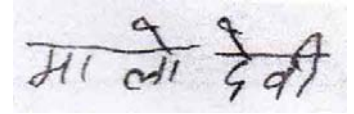 मालो देवी